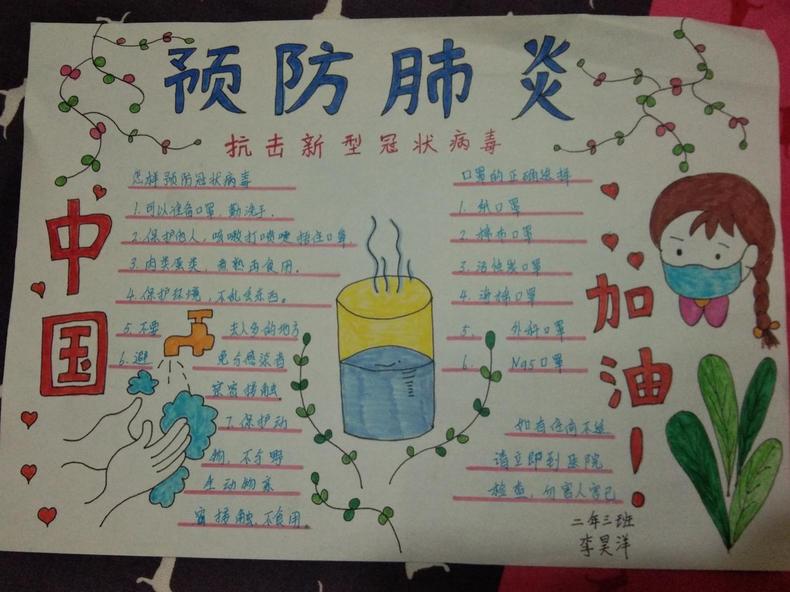 预防肺炎
抗击新型冠状病毒
中国
加油！
怎样预防冠状病毒
1.可以准备口罩，勤洗手．
2.保护两人，咳嗽打喷嚏捂住口罩
3.肉类蛋类，煮熟再食用．
4.保护环境，不乱丢东西。
5.不要 去人多的地方
6.避 免与感染者
亲密接触
7.保护动
物，不与野
生动物亲
密接触,不食用．
口罩的正确选择
1．纸口罩
2．棉布口罩
3．活性炭口罩
4．海绵口罩
5． 外科口罩
6． N95口罩
如有任何不适
请立即到医院
检查，勿害人害己
二年三班
李昊洋